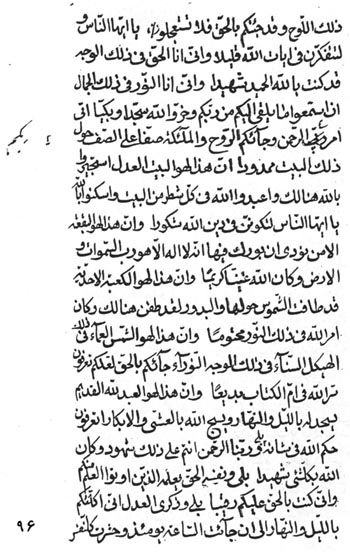 ذلك اللوح وقد جئتكم بالحق فلا تستعجلون يا ايها الناس و
لتفكرن في ايات الله قليلا واني انا الحق في ذلك الوجه
قد كنت بالله الحميد شهيدا واني انا النور في ذلك الجمال
ان استمعوا لما يلقى اليكم من ربكم وخروا لله سجدا وبكيا اتى
امر الرحمن وجائكم الروح والملئكة صفا على الصف حول
ذلك البيت ممدودا ان هذا لهو البيت العدل استجيروا
بالله هنالك واعبدوا الله في كل شطر من البيت واسكنوا
يا ايها الناس لتكونن في دين الله شكورا وان هذا لهو البقعة
الامن نودى ان بورك فيها انه لا اله الا هو رب السموات و
الارض وكان الله غنيا كريما وان هذا لهو الكعبة
قد طافت الشموس حولها والبدور لقد طفن هنالك وكان
امر الله في ذلك النور محتوما وان هذا لهو الشمس العماء في
الهيكل السناء في ذلك الوجه النوراء جائكم بالحق لعلكم تعرفون
سر الله في ام الكتاب بديعا وان هذا لهو العبد لله القديم
يسجد له بالليل والنهار ويسبح الله بالعشي والابكار لتعرفون
حكم الله في شانه ربنا الرحمن انتم على ذلك شهود وكان
الله بكلشئ شهيدا بلى ونفسه الحق يعلمه الذين اوتوا العلم منكم
واني كنت بالحق عليكم رقيبا بلى وذكرى العدل اني اكلمكم
بالليل والنهار الى ان جائت الساعة يومئذ وحشرن كل نفس
٩۶